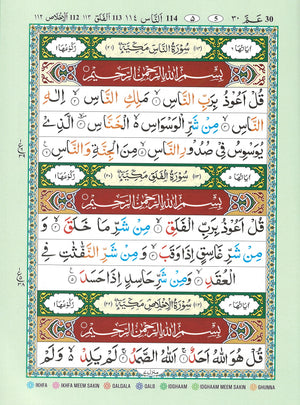 30 عَـمَّ ٣٠ ۵ 5 114 اَلنَّاس ١١٤ 113 اَلْفَلَق ١١٣ 112 اَلْاِخْلَاص ١١٢
سُوْرَةُ النَّاسِ مَكِّيَّةٌ
بِسْمِ اللّٰهِ الرَّحْمٰنِ الرَّحِيْمِ
قُلْ اَعُوْذُ بِرَبِّ النَّاسِ ۙ مَلِكِ النَّاسِ ۙ اِلٰهِ
النَّاسِ ۙ مِنْ شَرِّ الْوَسْوَاسِ ۙ الْخَنَّاسِ ۙ الَّذِيْ
يُوَسْوِسُ فِيْ صُدُوْرِ النَّاسِ ۙ مِنَ الْجِنَّةِ وَالنَّاسِ
سُوْرَةُ الْفَلَقِ مَكِّيَّةٌ
بِسْمِ اللّٰهِ الرَّحْمٰنِ الرَّحِيْمِ
قُلْ اَعُوْذُ بِرَبِّ الْفَلَقِ ۙ مِنْ شَرِّ مَا خَلَقَ ۙ وَ
مِنْ شَرِّ غَاسِقٍ اِذَا وَقَبَ ۙ وَ مِنْ شَرِّ النَّفّٰثٰتِ فِي
الْعُقَدِ ۙ وَمِنْ شَرِّ حَاسِدٍ اِذَا حَسَدَ
سُوْرَةُ الْاِخْلَاصِ مَكِّيَّةٌ
بِسْمِ اللّٰهِ الرَّحْمٰنِ الرَّحِيْمِ
قُلْ هُوَ اللّٰهُ اَحَدٌ ۚ اَللّٰهُ الصَّمَدُ ۚ لَمْ يَلِدْ ۙ وَ لَمْ
IKHFA IKHFA MEEM SAKIN QALQALA QALB IDGHAAM IDGHAAM MEEM SAKIN GHUNNA